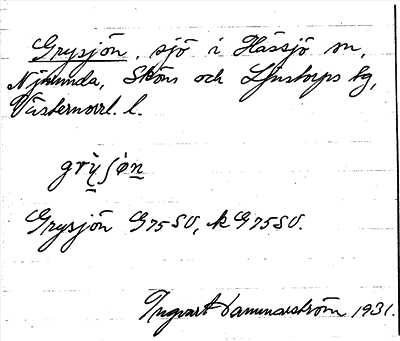 Grysjön, sjö i Hässjö sn,
Njurunda, Sköns och Ljustorps tg,
Västernorrl. l.
grỳʃȯn
Grysjön G75SV, k G75SV.
Ingvart 1931.